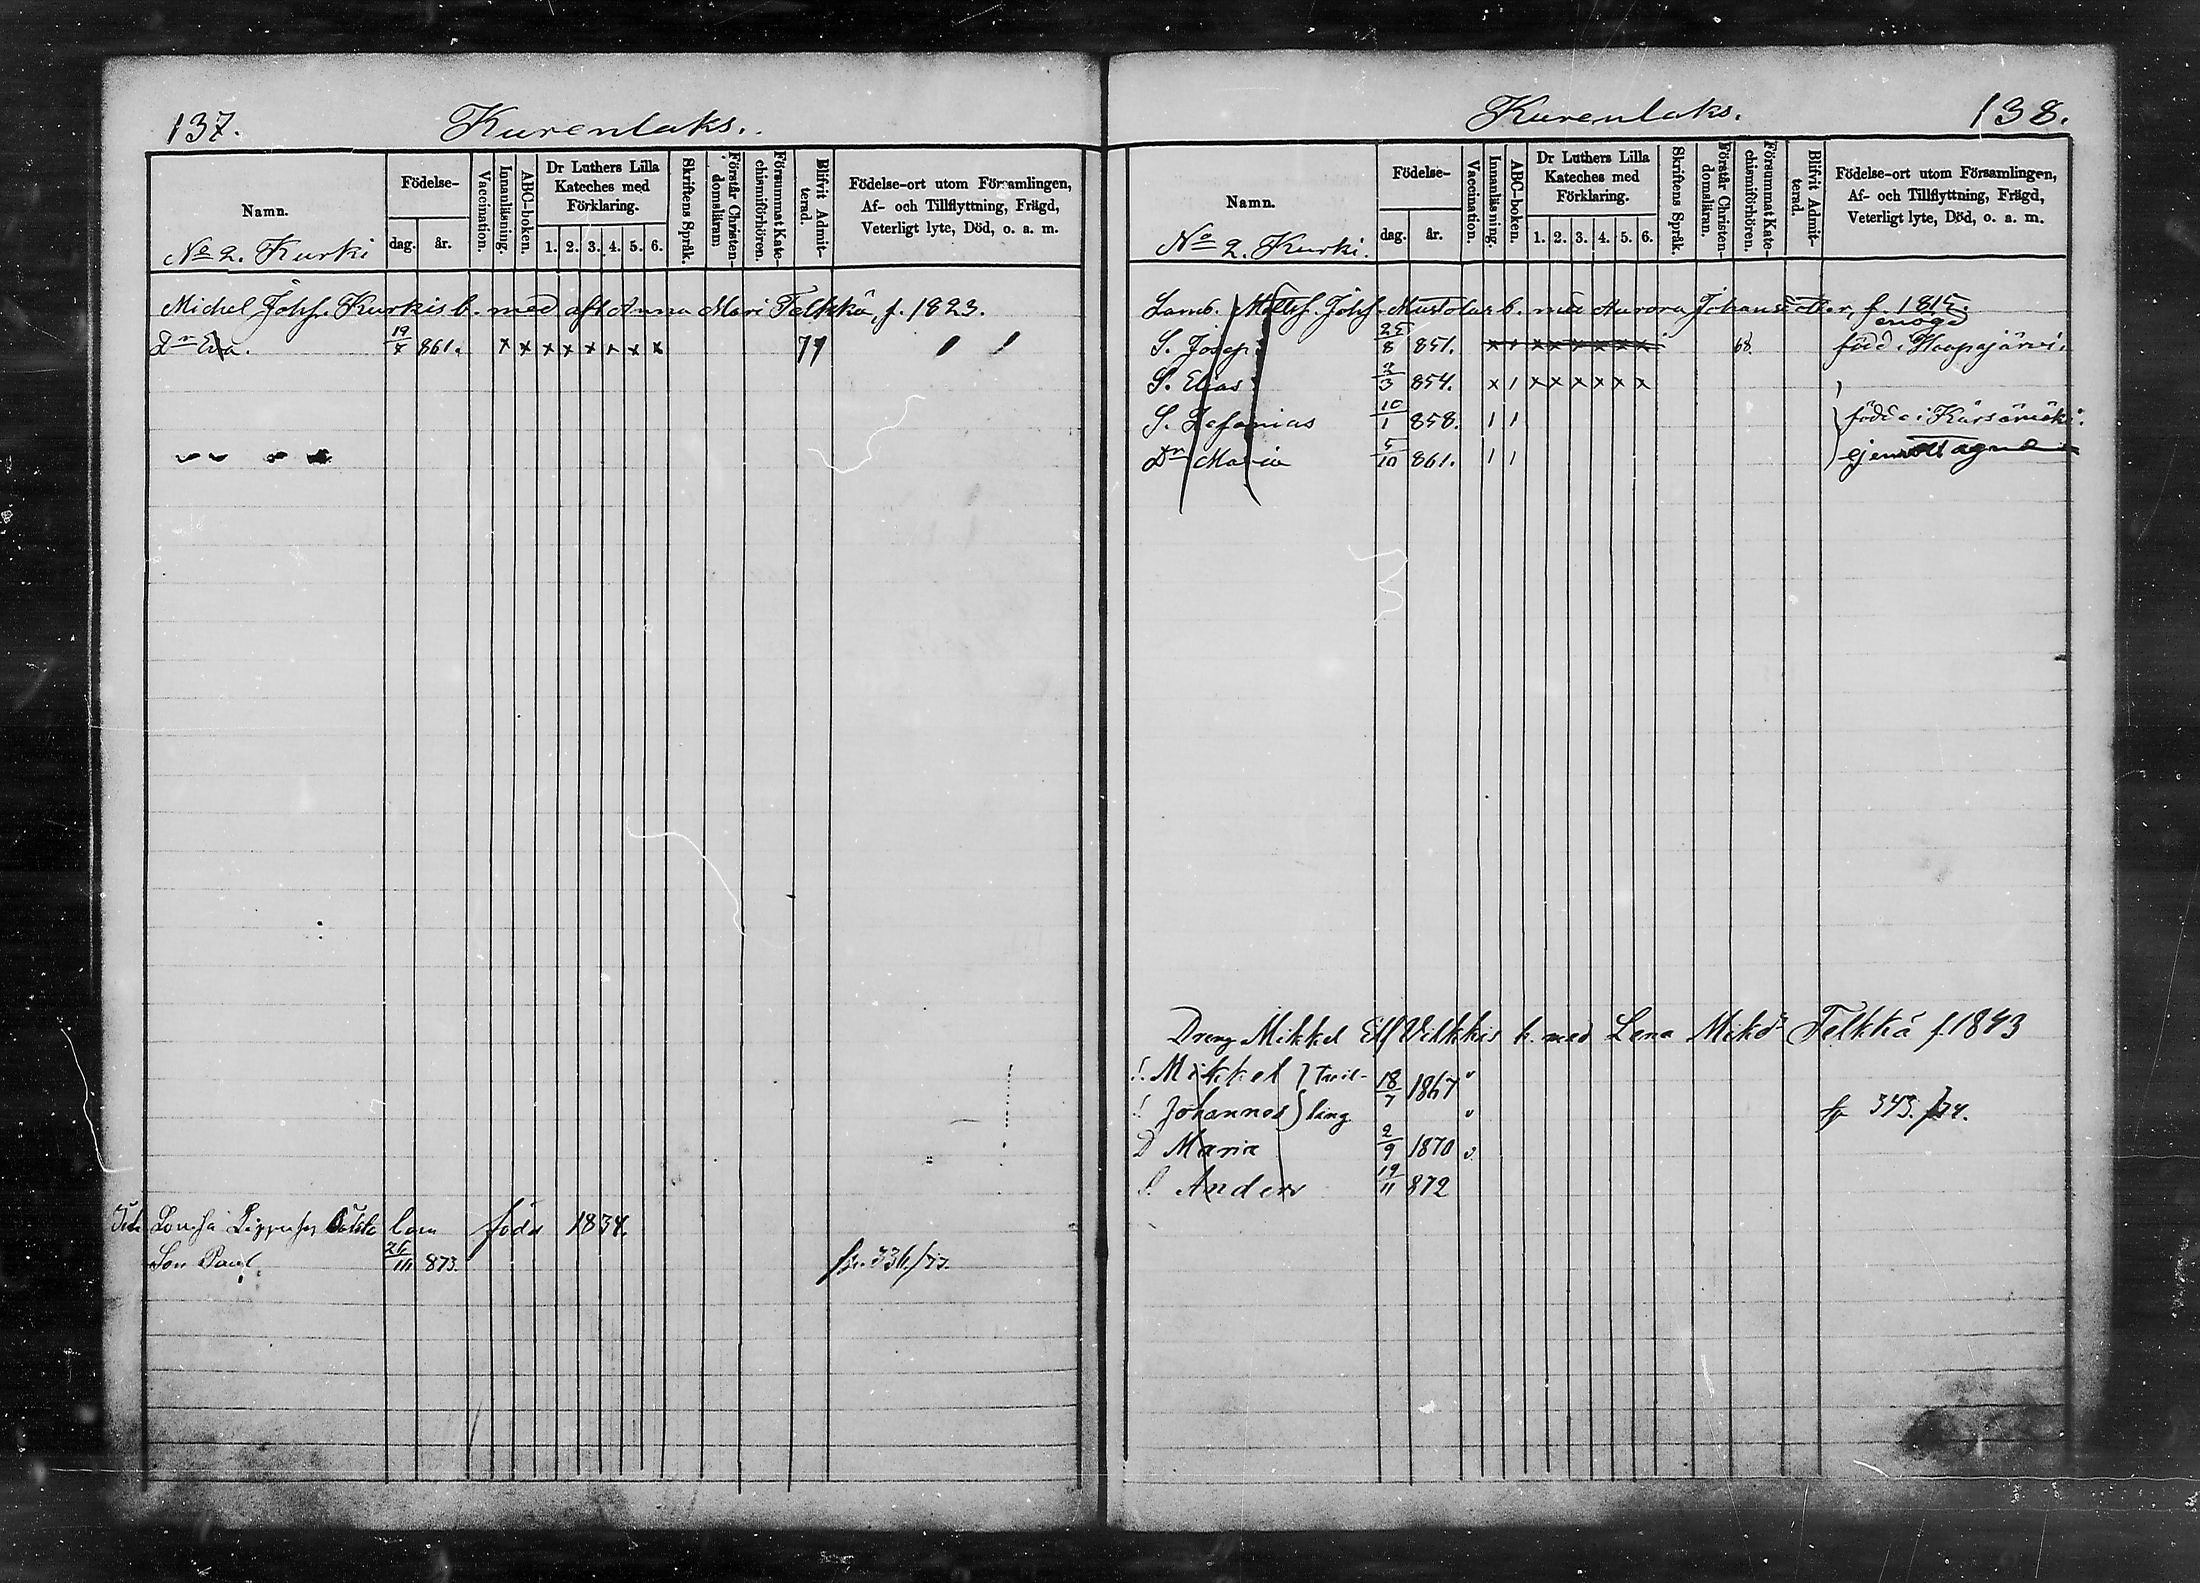 137.
Kurenlaks.
Namn.
Födelse-
dag. år.
Vaccination.
Innanläsning.
ABC-boken.
Dr Luthers Lilla Kateches med Förklaring.
1. 2. 3. 4. 5. 6.
Skriftens Språk.
Förstår Christendomsläran.
Försummat Katechismiförhören.
Blifvit Admitterad.
Födelse-ort utom Församlingen,
Af- och Tillflyttning, Frägd,
Veterligt lyte, Död, o. a. m.
No 2. Kurki
Michel Johs. Kurkis b. med afl Anna Mari Telkkä, f. 1823.
Dr Eva. 19/7 861. x x x x x x x x 77
Louisa född 1834.
Son Paul 873. 336./77.
Kurenlaks.
138.
Namn.
Födelse-
dag. år.
Vaccination.
Innanläsning.
ABC-boken.
Dr Luthers Lilla Kateches med Förklaring.
1. 2. 3. 4. 5. 6.
Skriftens Språk.
Förstår Christendomsläran.
Försummat Katechismiförhören.
Blifvit Admitterad.
Födelse-ort utom Församlingen,
Af- och Tillflyttning, Frägd,
Veterligt lyte, Död, o. a. m.
No 2. Kurki.
Johs. Mustolas b. med Aurora f. 1815.
enögd
S. Josep 25/8 851. x 1 x x x x x x 68. född i Haapajärvi.
S. Elias 2/3 854. x 1 x x x x x x
S. Zefanias 10/1 858. 1 1 födda i Kärsämäki.
Dr Maria 5/10 861. 1 1 ej
Dreng Mikkel Vilkkis h. med Lena Mikdr Telkkä f. 1843
S. Mikkel } tvil- 18/7 1867 v
S. Johannes } ling v 343./74.
D Maria 2/9 1870 v.
S. Anders 19/11 872